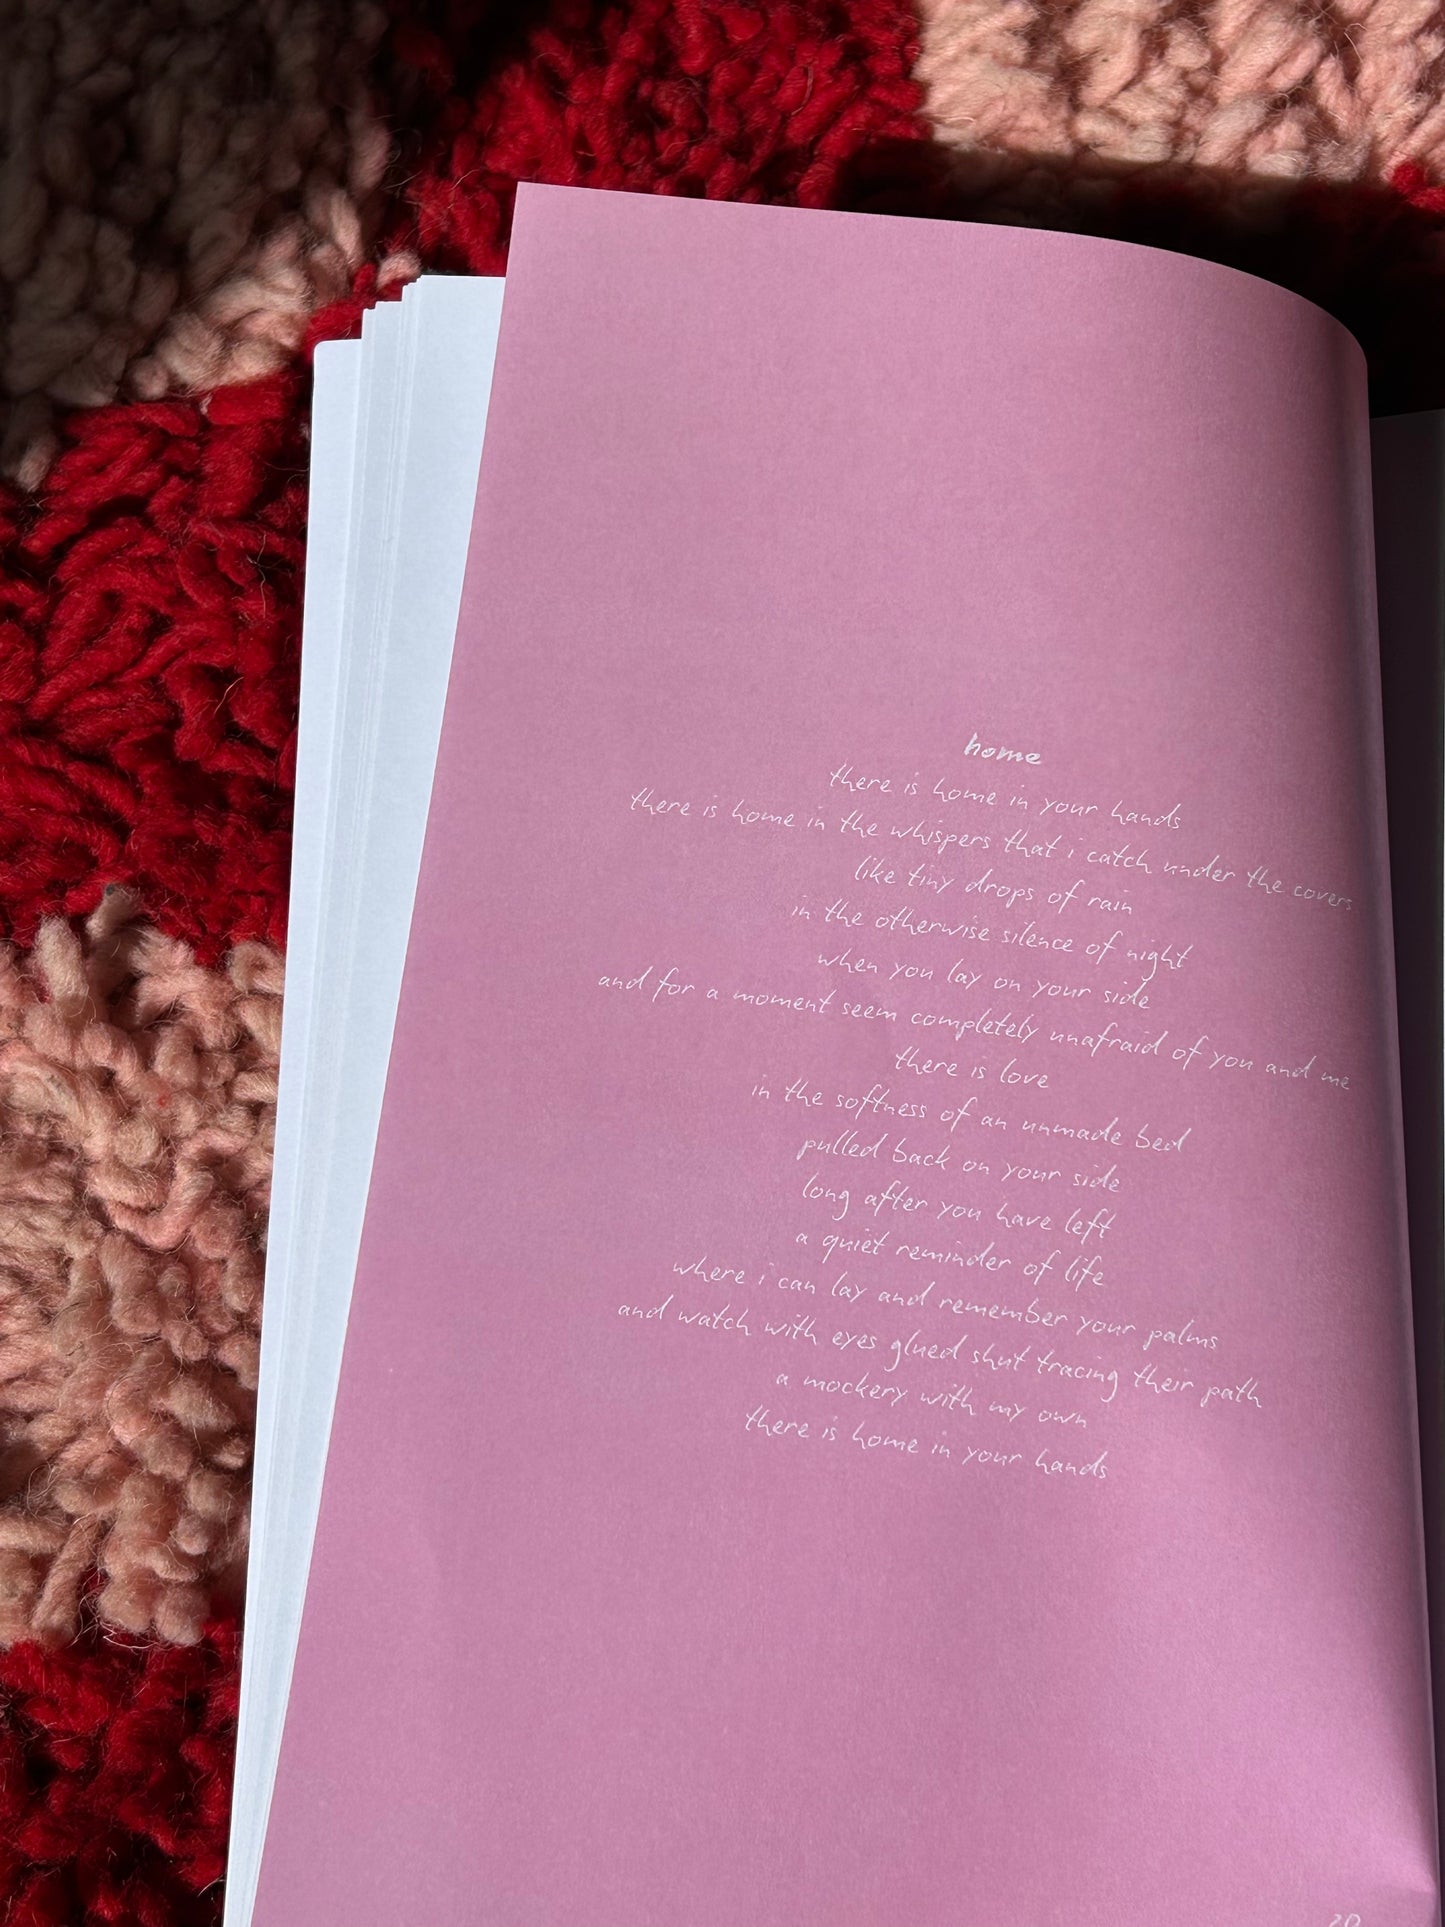 home
there is home in your hands
there is home in the whispers that i catch under the covers
like tiny drops of rain
in the otherwise silence of night
when you lay on your side
and for a moment seem completely unafraid of you and me
there is love
in the softness of an unmade bed
pulled back on your side
long after you have left
a quiet reminder of life
where i can lay and remember your palms
and watch with eyes glued shut tracing their path
a mockery with my own
there is home in your hands